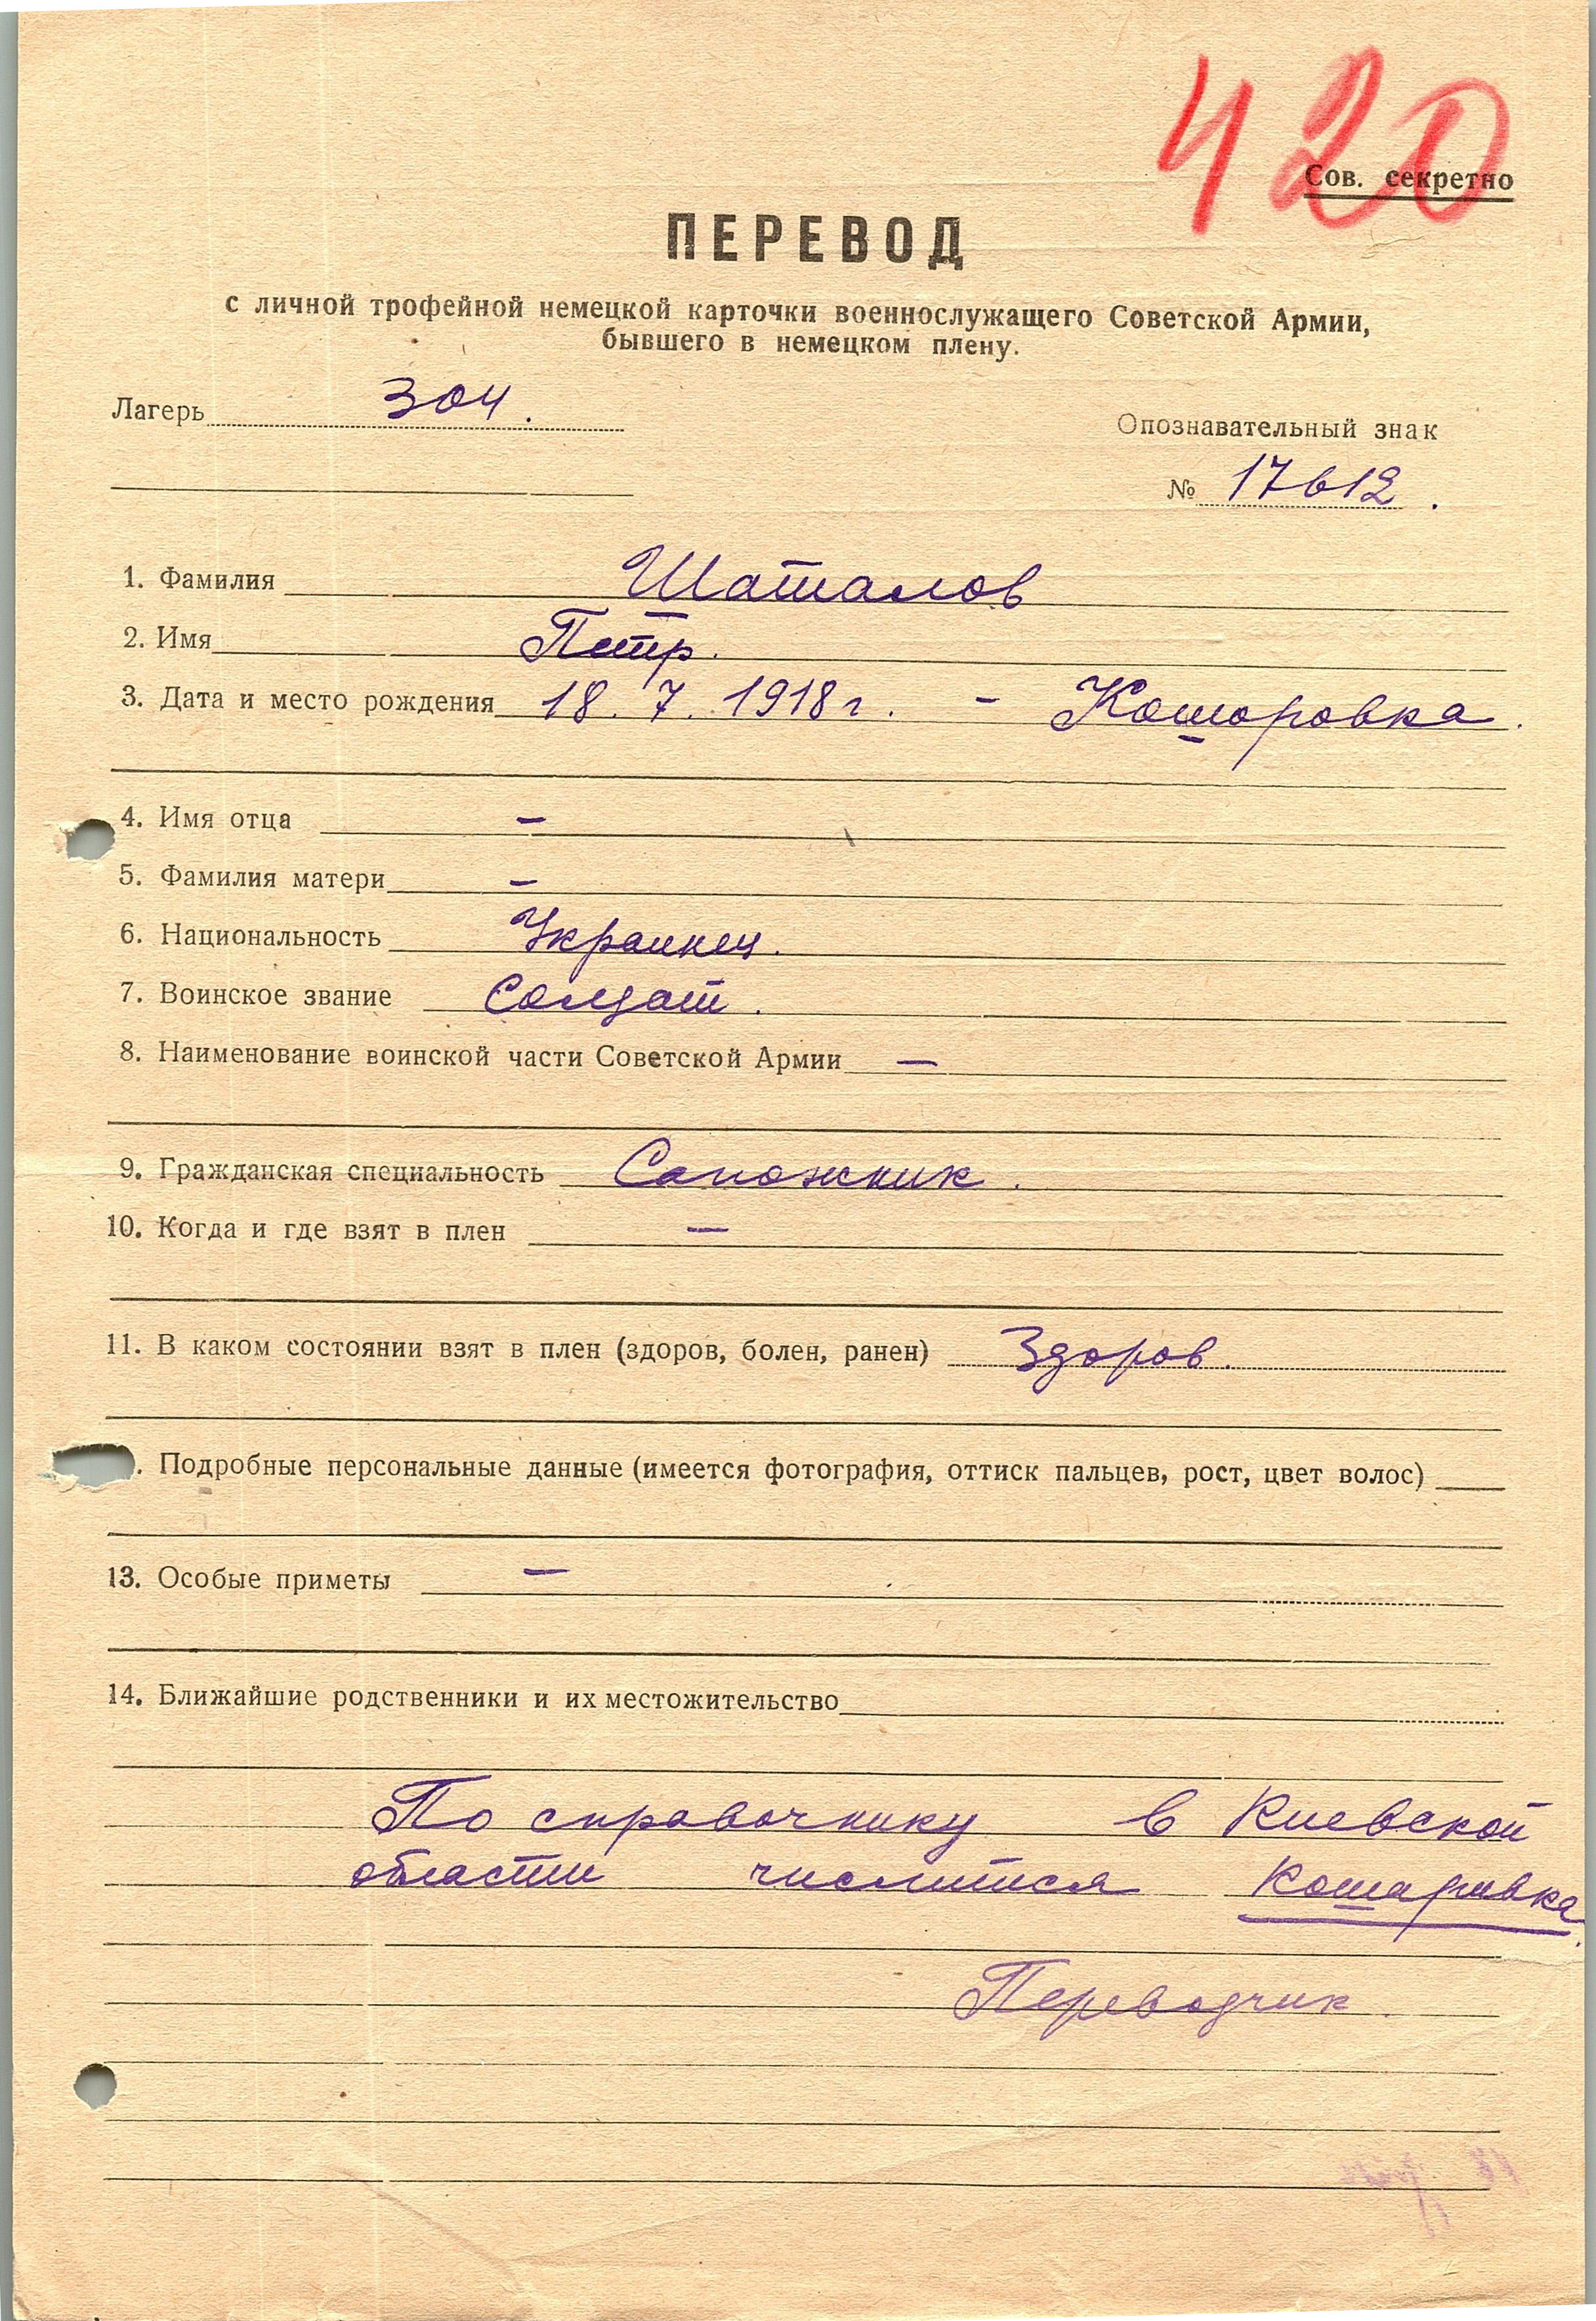 420
Сов. секретно
ПЕРЕВОД
с личной трофейной немецкой карточки военнослужащего Советской Армии,
бывшего в немецком плену.
Лагерь 304.
Опознавательный знак
№ 17612.
1. Фамилия Шаталов
2. Имя Петр.
3. Дата и место рождения 18. 7. 1918 г. - Кошоровка.
4. Имя отца —
5. Фамилия матери —
6. Национальность Украинец.
7. Воинское звание Солдат.
8. Наименование воинской части Советской Армии —
9. Гражданская специальность Сапожник.
10. Когда и где взят в плен —
11. В каком состоянии взят в плен (здоров, болен, ранен) Здоров.
. Подробные персональные данные (имеется фотография, оттиск пальцев, рост, цвет волос)
13. Особые приметы —
14. Ближайшие родственники и их местожительство
По справочнику в Киевской
области числится Кошаривка.
Переводчик.